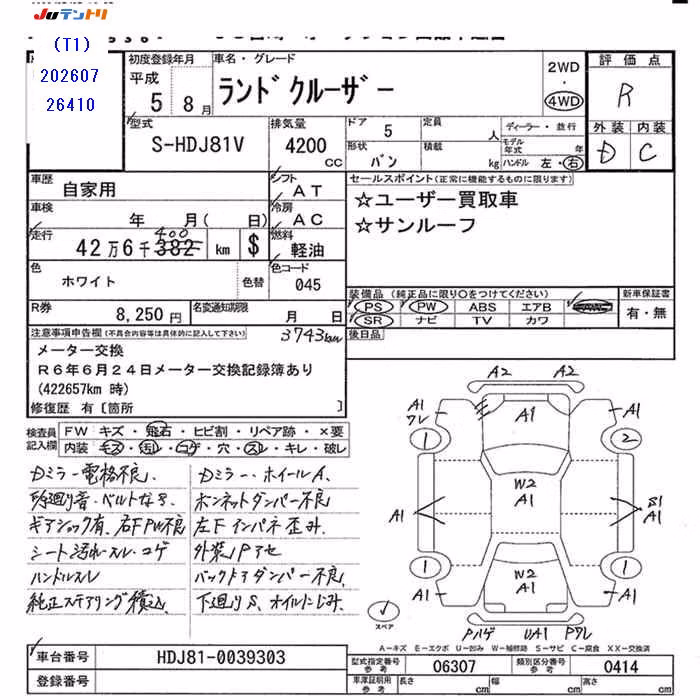 Juテントリ
(T1)
202607
26410
初度登録年月
平成
5 8月
車名・グレード
ランドクルーザー
2WD
・
4WD
評価点
R
外装 内装
D C
型式
S-HDJ81V
排気量
4200 cc
ドア 5
形状 バン
定員 人
積載 kg
ディーラー・並行
モデル年式 年
ハンドル 左・右
車歴 自家用
シフト AT
車検 年 月( 日)
冷房 AC
走行 42万6千382 km $
400
燃料 軽油
色 ホワイト 色替
色コード 045
セールスポイント(正常に機能するものに限ります)
☆ユーザー買取車
☆サンルーフ
R券 8,250円
名変通知期限 月 日
装備品(純正品に限り○をつけてください)
PS PW ABS エアB
SR ナビ TV カワ
新車保証書
有・無
後日品
注意事項申告欄(不具合内容等は具体的に記入して下さい)
3743km
メーター交換
R6年6月24日メーター交換記録簿あり
(422657km 時)
修復歴 有〔箇所 〕
検査員記入欄
FW キズ・飛石・ヒビ割・リペア跡・×要
内装 キズ・汚れ・コゲ・穴・スレ・キレ・破レ
Dミラー電格不良、
ベルトなき、
ギアショック有、右FPW不良
シート汚れ・スル・コゲ
ハンドルスレ
純正ステアリング積込、
Dミラー・ホイールA、
ボンネットダンパー不良
左下インパネ歪み、
外装
バックドアダンパー不良、
下廻りS、オイルにじみ、
A2 A2
A1 ワレ
A1
A1
1
2
W2
A1
A1
S1
A1
1
1
W2
A1
A1
A1
Pハゲ UA1 Pワレ
スペア
A=キズ E=エクボ U=凹み W=補修跡 S=サビ C=腐食 XX=交換済
車台番号 HDJ81-0039303
登録番号
型式指定番号 参考 06307
類別区分番号 参考 0414
車庫証明用 参考 長さ cm 幅 cm 高さ cm